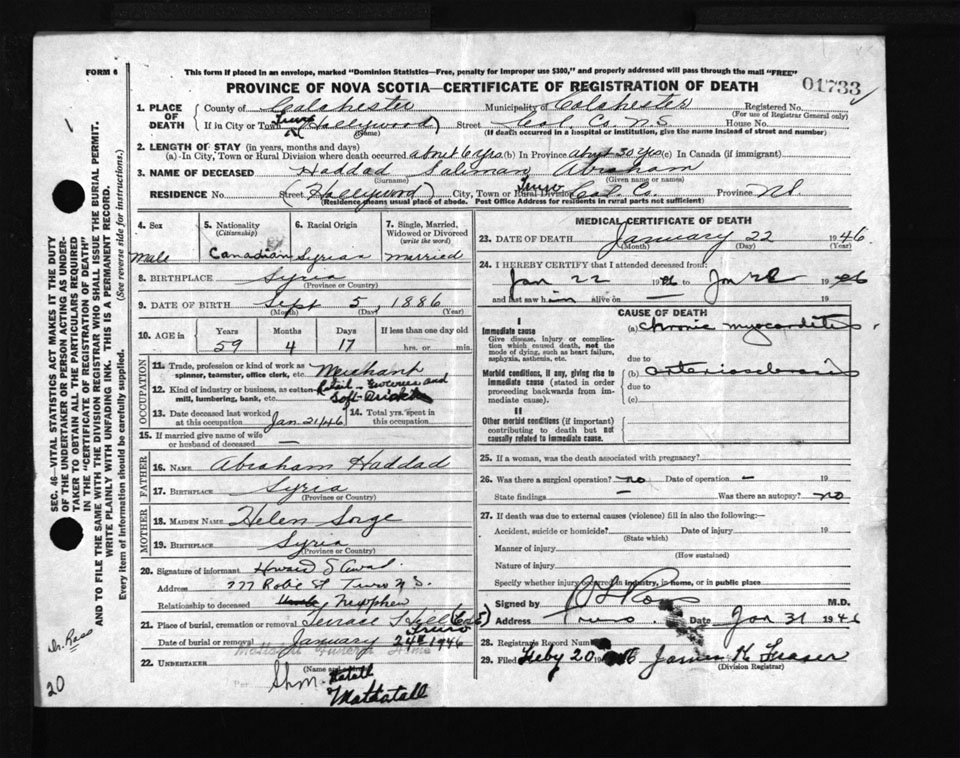 FORM 6
This form if placed in an envelope, marked "Dominion Statistics—Free, penalty for improper use $300," and properly addressed will pass through the mail "FREE"
PROVINCE OF NOVA SCOTIA—CERTIFICATE OF REGISTRATION OF DEATH
01733
1. PLACE OF DEATH
County of Colchester Municipality of Colchester Registered No.
(For use of Registrar General only)
If in City or Town Truro (Hollywood) Street Col. Co. N.S. House No.
(Name) (If death occurred in a hospital or institution, give the name instead of street and number)
2. LENGTH OF STAY (in years, months and days)
(a) In City, Town or Rural Division where death occurred about 6 yrs. (b) In Province about 30 yrs (c) In Canada (if immigrant)
3. NAME OF DECEASED Haddad Saliman Abraham
(Surname) (Given name or names)
RESIDENCE No. Street (Hollywood) City, Town or Rural Division Truro Col. Co. Province N.S.
(Residence means usual place of abode. Post Office Address for residents in rural parts not sufficient)
4. Sex
Male
5. Nationality (Citizenship)
Canadian
6. Racial Origin
Syrian
7. Single, Married, Widowed or Divorced (write the word)
married
8. BIRTHPLACE Syria
(Province or Country)
9. DATE OF BIRTH Sept 5, 1886
(Month) (Day) (Year)
10. AGE in
Years Months Days If less than one day old
59 4 17 hrs. or min.
OCCUPATION
11. Trade, profession or kind of work as spinner, teamster, office clerk, etc. Merchant
12. Kind of industry or business, as cotton mill, lumbering, bank, etc. Retail - Groceries and Soft-Drinks
13. Date deceased last worked at this occupation Jan 21/46
14. Total yrs. spent in this occupation
15. If married give name of wife or husband of deceased —
FATHER
16. NAME Abraham Haddad
17. BIRTHPLACE Syria
(Province or Country)
MOTHER
18. MAIDEN NAME Helen
19. BIRTHPLACE Syria
(Province or Country)
20. Signature of informant Howard S
Address 777 Robie St Truro N.S.
Relationship to deceased Newphew
21. Place of burial, cremation or removal Terrace Hill Truro
Date of burial or removal January 24th 1946
22. UNDERTAKER
(Name and
Mattatall
MEDICAL CERTIFICATE OF DEATH
23. DATE OF DEATH January 22 1946
(Month) (Day) (Year)
24. I HEREBY CERTIFY that I attended deceased from:
Jan 22 1946 to Jan 22 1946
and last saw him alive on — 19
CAUSE OF DEATH
I
Immediate cause
Give disease, injury or complication which caused death, not the mode of dying, such as heart failure, asphyxia, asthenia, etc.
(a) chronic myocarditis
due to
Morbid conditions, if any, giving rise to immediate cause (stated in order proceeding backwards from immediate cause)
(b) arteriosclerosis
due to
(c)
II
Other morbid conditions (if important) contributing to death but not causally related to immediate cause.
25. If a woman, was the death associated with pregnancy?
26. Was there a surgical operation? no Date of operation —
State findings — Was there an autopsy? no
27. If death was due to external causes (violence) fill in also the following:—
Accident, suicide or homicide? Date of injury 19
(State which)
Manner of injury
(How sustained)
Nature of injury
Specify whether injury occurred in industry, in home, or in public place
Signed by M.D.
Address Truro. Date Jan 31 1946
28. Registrars Record Number
29. Filed Feby 20 James K Fraser
(Division Registrar)
SEC. 46—VITAL STATISTICS ACT MAKES IT THE DUTY OF THE UNDERTAKER OR PERSON ACTING AS UNDERTAKER TO OBTAIN ALL THE PARTICULARS REQUIRED IN THE "CERTIFICATE OF REGISTRATION OF DEATH" AND TO FILE THE SAME WITH THE DIVISION REGISTRAR WHO SHALL ISSUE THE BURIAL PERMIT.
WRITE PLAINLY WITH UNFADING INK. THIS IS A PERMANENT RECORD.
Every item of information should be carefully supplied. (See reverse side for instructions.)
20